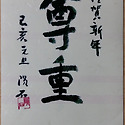 恭賀新年
尊重
己亥元旦